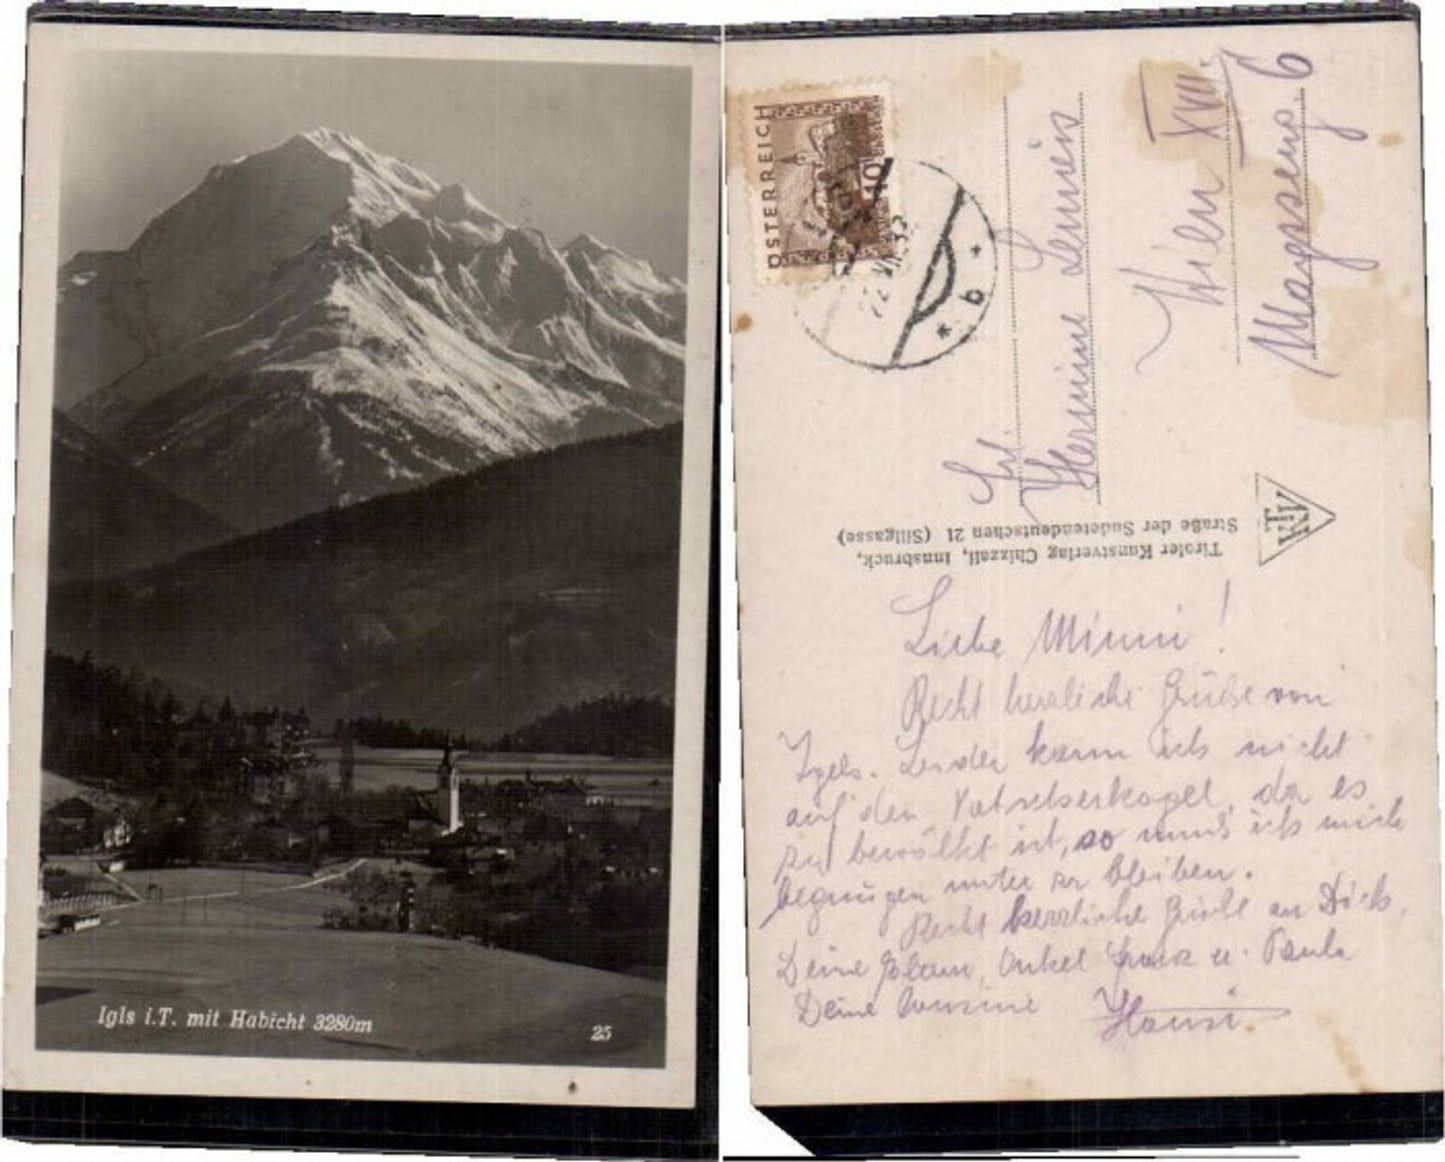 Igls i.T. mit Habicht 3280m
25
ÖSTERREICH
10
22 VII 33
* b *
Frl.
Hermine
Wien XVII.
6
TKV
Tiroler Kunstverlag Chizzali, Innsbruck,
Straße der Sudetendeutschen 21 (Sillgasse)
Liebe Minni!
Recht herzliche Grüße von
Igls. Leider kann ich nicht
auf den Patscherkogel, da es
zu bewölkt ist, so muß ich mich
begnügen unter zu bleiben.
Recht herzliche Grüße an Dich,
Deine Onkel Franz u. Paula
Deine Cousine Hansi